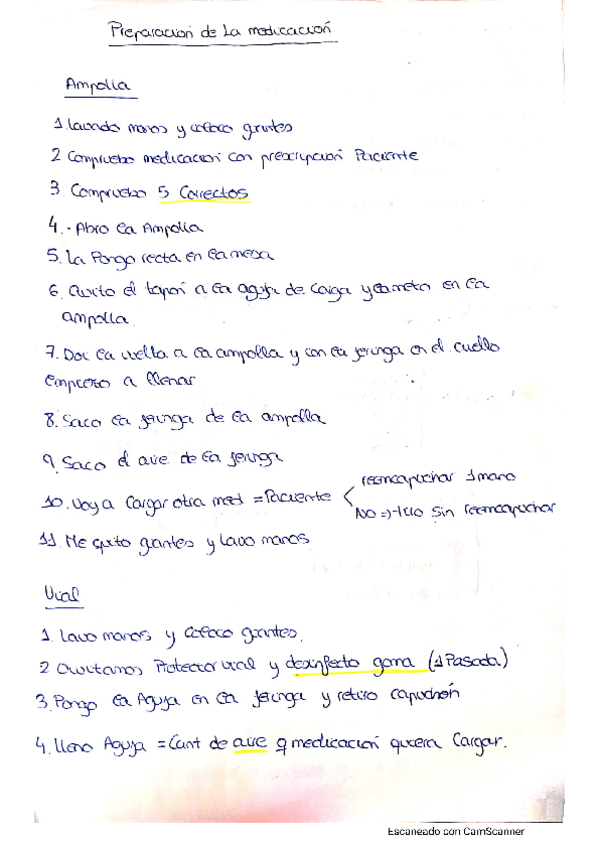 Preparacion de La medicación
Ampolla
1. Lavado manos y coloco guantes
2 Compruebo medicacion con prescripcion Paciente
3. Compruebo 5 Correctos
4.- Abro la Ampolla
5. La Pongo recta en la mesa
6. Quito el tapon a la aguja de carga y la meto en la
ampolla
7. Doi la vuelta a la ampolla y con la jeringa en el cuello
empiezo a llenar
8. Saco la jeringa de la ampolla
9. Saco el aire de la jeringa
10. Voy a Cargar otra med = Paciente < reencapuchar 1 mano
No => Tiro Sin reencapuchar
11. Me quito guantes y Lavo manos
Vial
1. Lavo manos y coloco guantes.
2 Quitamos Protector vial y desinfecto goma (1 Pasada)
3. Pongo la Aguja en la jeringa y retiro capuchón
4. lleno Aguja = Cant de aire q medicación quiera Cargar.
Escaneado con CamScanner